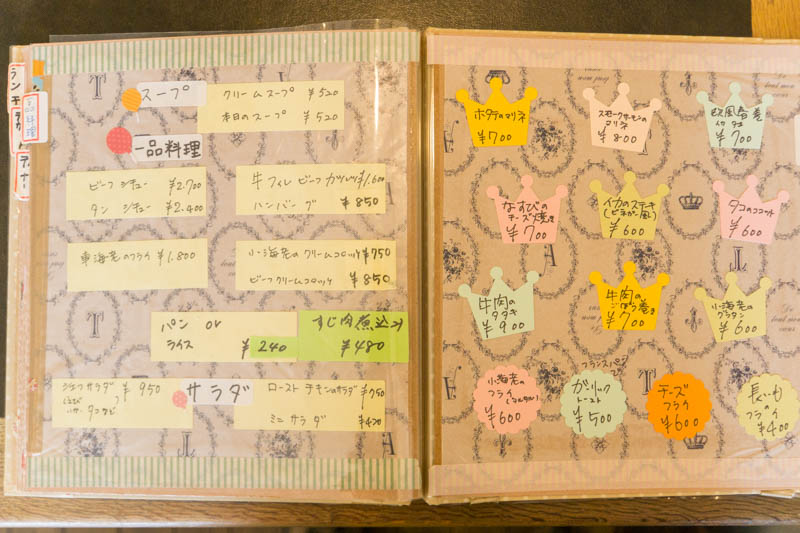 ランチ
一品料理
ディナー
スープ
クリームスープ ¥520
本日のスープ ¥520
一品料理
ビーフシチュー ¥2.700
タンシチュー ¥2.400
牛フィレビーフカツレツ ¥1.600
ハンバーグ ¥850
車海老のフライ ¥1.800
小海老のクリームコロッケ ¥750
ビーフクリームコロッケ ¥850
パン or
ライス ¥240
すじ肉煮込み
¥480
シェフサラダ ¥950
サラダ
ローストチキンのサラダ ¥750
ミニサラダ ¥420
ホタテのマリネ
¥700
スモークサーモンの
マリネ
¥800
欧風春巻
¥700
なすびの
チーズ焼き
¥700
イカのステーキ
(ビネガー風)
¥600
タコのココット
¥600
牛肉の
タタキ
¥900
牛肉の
ごぼう巻き
¥700
小海老の
グラタン
¥600
小海老の
フライ
(タルタル)
¥600
フランスパン
ガーリック
トースト
¥500
チーズ
フライ
¥600
長いも
の
フライ
¥400